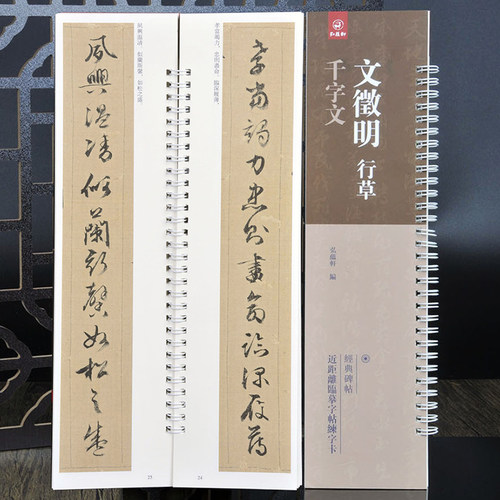 孝當竭力忠則盡命臨深履薄
孝當竭力，忠則盡命。臨深履薄，
夙興溫凊似蘭斯馨如松之盛
夙興溫凊。似蘭斯馨，如松之盛。
24
25
弘蘊軒
文徵明
行草
千字文
弘蘊軒 編
經典碑帖
近距離臨摹字帖練字卡